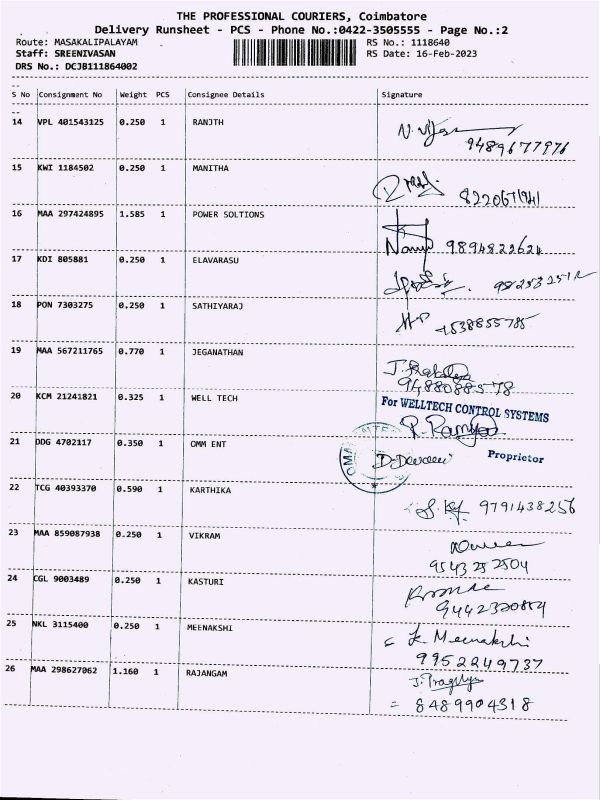 THE PROFESSIONAL COURIERS, Coimbatore
Delivery Runsheet - PCS - Phone No.:0422-3505555 - Page No.:2
Route: MASAKALIPALAYAM RS No.: 1118640
Staff: SREENIVASAN RS Date: 16-Feb-2023
DRS No.: DCJB111864002
S No Consignment No Weight PCS Consignee Details Signature
14 VPL 401543125 0.250 1 RANJTH
9489677976
15 KWI 1184502 0.250 1 MANITHA
16 MAA 297424895 1.585 1 POWER SOLTIONS
9894822624
17 KDI 805881 0.250 1 ELAVARASU
18 PON 7303275 0.250 1 SATHIYARAJ
19 MAA 567211765 0.770 1 JEGANATHAN
9488088578
20 KCM 21241821 0.325 1 WELL TECH
For WELLTECH CONTROL SYSTEMS
21 DDG 4702117 0.350 1 OMM ENT
Proprietor
22 TCG 40393370 0.590 1 KARTHIKA
9791438256
23 MAA 859087938 0.250 1 VIKRAM
9543252504
24 CGL 9003489 0.250 1 KASTURI
25 NKL 3115400 0.250 1 MEENAKSHI
Meenakshi
9952249737
26 MAA 298627062 1.160 1 RAJANGAM
= 8489904318